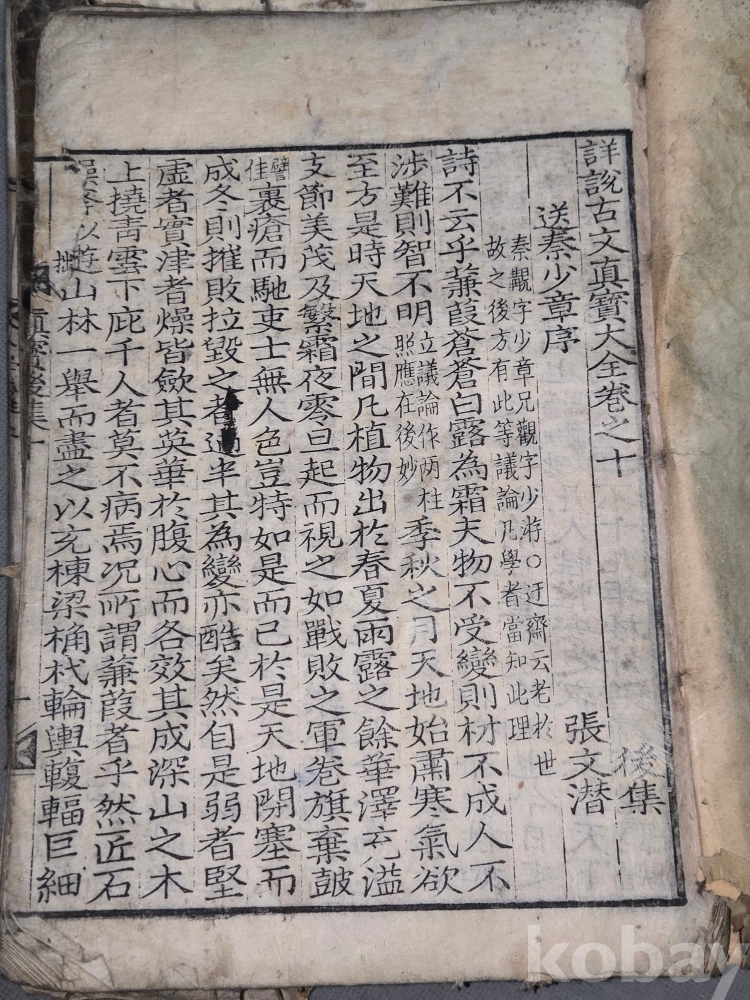 詳說古文眞寶大全卷之十
後集
送秦少章序
張文潛
秦覯字少章兄觀字少游○迂齋云老於世
故之後方有此等議論凡學者當知此理
詩不云乎蒹葭蒼蒼白露為霜夫物不受變則材不成人不
涉難則智不明立議論作兩柱照應在後妙季秋之月天地始肅寒氣欲
至方是時天地之間凡植物出於春夏雨露之餘華澤充溢
支節美茂及繁霜夜零旦起而視之如戰敗之軍卷旗棄鼓
譬佳裹瘡而馳吏士無人色豈特如是而已於是天地閉塞而
成冬則摧敗拉毀之者過半其為變亦酷矣然自是弱者堅
虛者實津者燥皆斂其英華於腹心而各效其成深山之木
上撓靑雲下庇千人者莫不病焉况所謂蒹葭者乎然匠石
遊山林一舉而盡之以充棟梁桷杙輪輿輹輻巨細
眞寶後集十
kobay